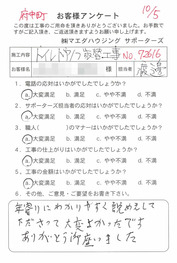 府中町
お客様アンケート
10/5
この度は工事のご用命を頂きありがとうございました。お手数で
すがご記入頂き、ご返送頂きますようお願い申し上げます。
㈱マエダハウジング サポーターズ
施工内容 トイレドアノブ取替工事 No.92616
お客様名 様 担当者 渡邉
1. 電話の対応はいかがでしたでしょうか？
a.大変満足 b.満足 c.やや不満 d.不満
2. サポーターズ担当者の対応はいかがでしたでしょうか？
a.大変満足 b.満足 c.やや不満 d.不満
3. 職人( )のマナーはいかがでしたでしょうか？
a.大変満足 b.満足 c.やや不満 d.不満
4. 工事の仕上がりはいかがでしたでしょうか？
a.大変満足 b.満足 c.やや不満 d.不満
5. 工事価格はいかがでしたでしょうか？
a.大変満足 b.満足 c.やや不満 d.不満
6. その他、ご意見・ご要望をお書き下さい。
年寄りにわかりやすく説めをして
下さって大変よかったです
ありがとう御座いました